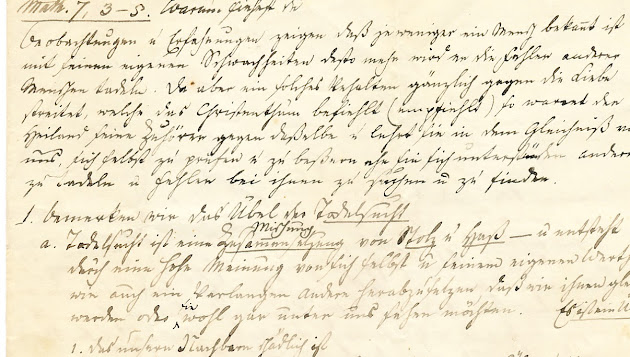 Math. 7, 3-5. Warum siehest du
Beobachtungen u Erfahrungen zeigen daß je weniger ein Mensch bekannt ist
mit seinen eigenen Schwachheiten desto mehr wird er die Fehler anderer
Menschen tadeln. Da aber ein solches Verhalten gänzlich gegen die Liebe
streitet, welche das Christenthum befiehlt (empfiehlt) so warnet der
Heiland seine Zuhörer gegen daßelbe u lehrt sie in dem Gleichniß
uns. sich selbst zu prüfen u zu beßern ehe sie sich unterständen andere
zu tadeln u Fehler bei ihnen zu suchen u zu finden.
1. Bemerken wir das Übel der Tadelsucht
Mischung
a. Tadelsucht ist eine Zusammensetzung von Stolz u Haß — u entsteht
durch eine hohe Meinung von sich selbst u seinem eigenen Werth
wie auch ein Verlangen andere herabzusetzen daß wir ihnen
sie
werden oder wohl gar unter uns sehen möchten. Es ist ein
1. das unsern Nachbarn schädlich ist